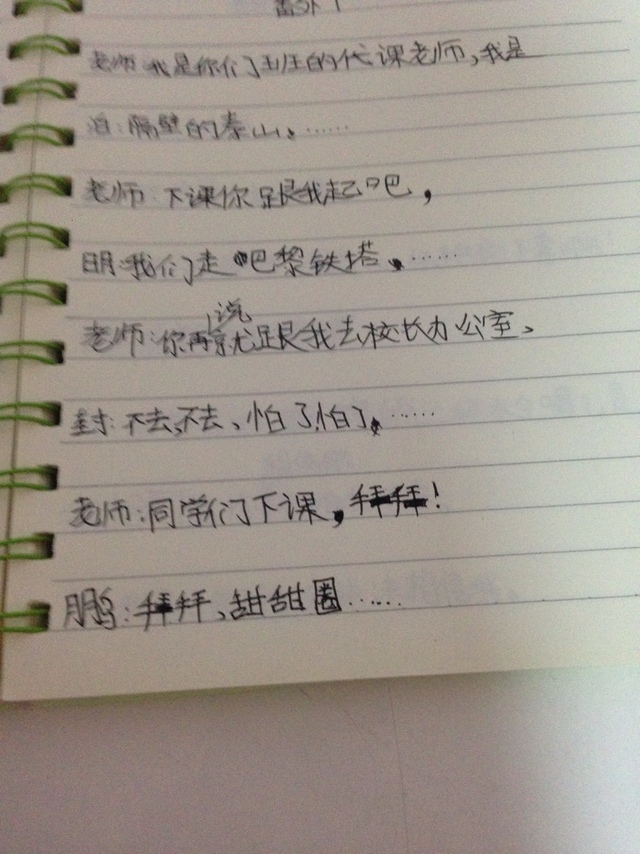 番外1
老师:我是你们班的代课老师,我是
泊:隔壁的泰山、……
老师:下课你跟我起吧,
明:我们走吧黎铁塔、……
老师:你再说就跟我去校长办公室、
封:不去,不去、怕了怕了、……
老师:同学们下课,拜拜!
鹏:拜拜、甜甜圈……